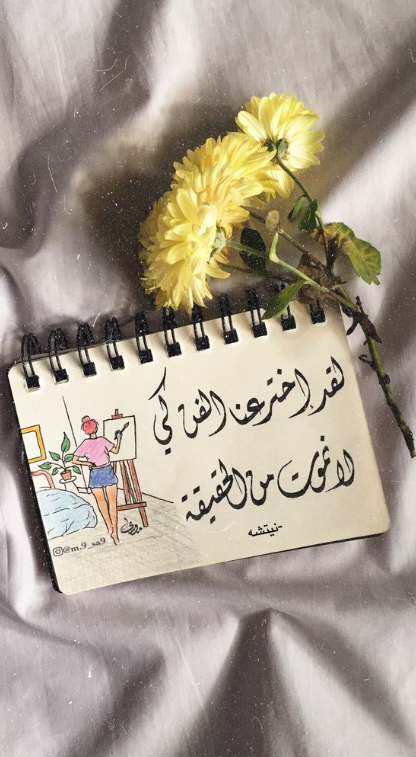 لقد إخترعنا الفن كي
لا نموت من الحقيقة
-نيتشه
@m.9_sa9